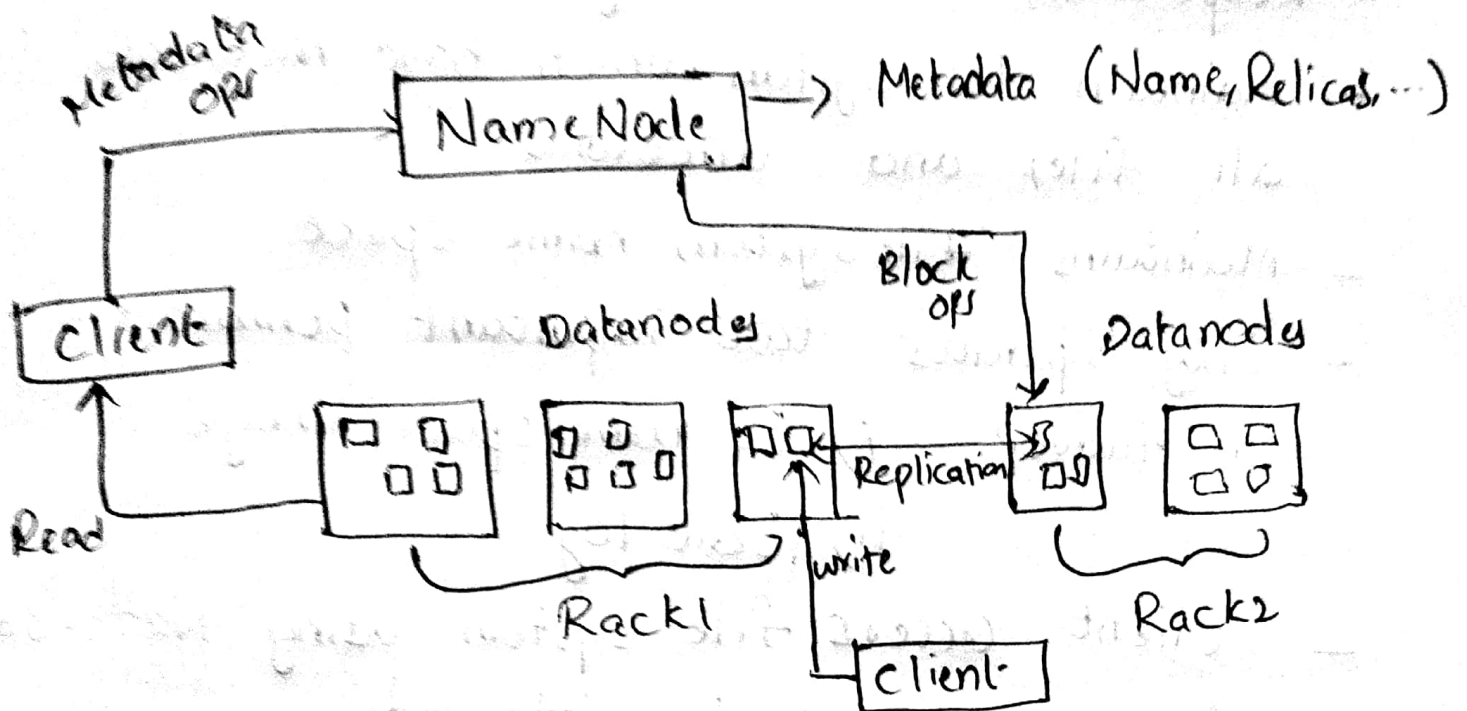 Metadata
ops
NameNode
Metadata (Name, Relicas, ...)
Block
ops
Client
Datanodes
Datanodes
Replication
Read
write
Rack1
Rack2
Client